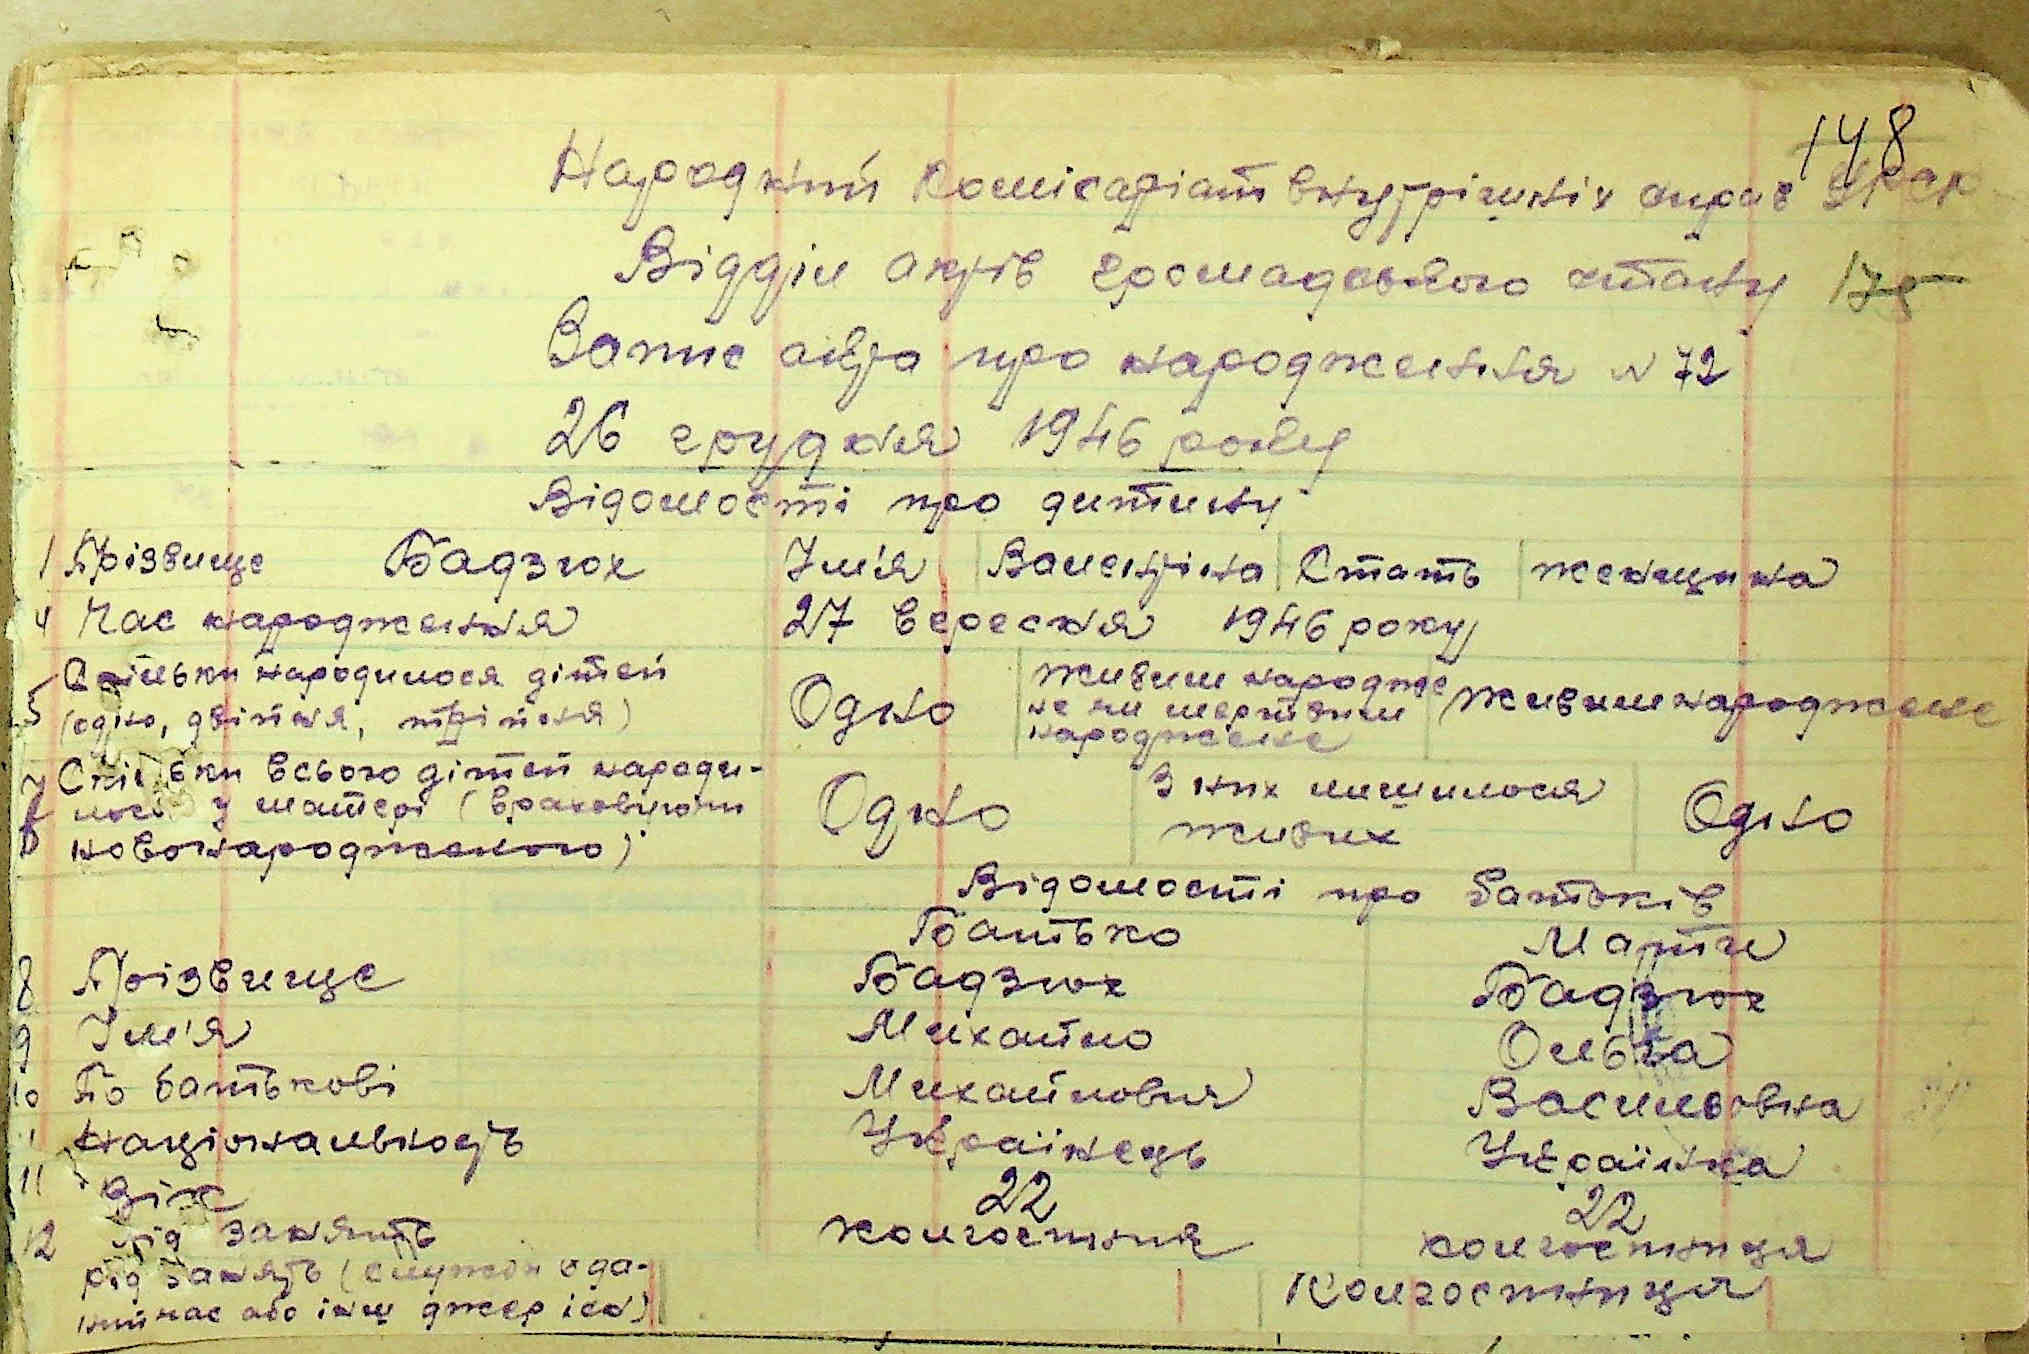 148
Народний Комісаріат внутрішніх справ УРСР
Відділ актів громадського стану 175
Запис акта про народження N 72
26 грудня 1946 року
Відомості про дитину
1 Прізвище Бадзюх Ім'я Валентіна Стать женщина
4 Час народження 27 вересня 1946 року
5 Скільки народилося дітей (одно, двійня, трійня) Одно живим народжене чи мертвим народжене Живим народжене
7 Скільки всього дітей народилось у матері (враховуючи новонародженого) Одно З них лишилося живих Одно
Відомості про батьків
Батько Мати
8 Прізвище Бадзюх Бадзюх
9 Ім'я Михайло Ольга
10 По батькові Михайлович Васильовна
Національность Українець Українка
11 Вік 22 22
12 Рід занять колгоспник колгоспниця
рід занять
або інш джер існ) Колгоспниця